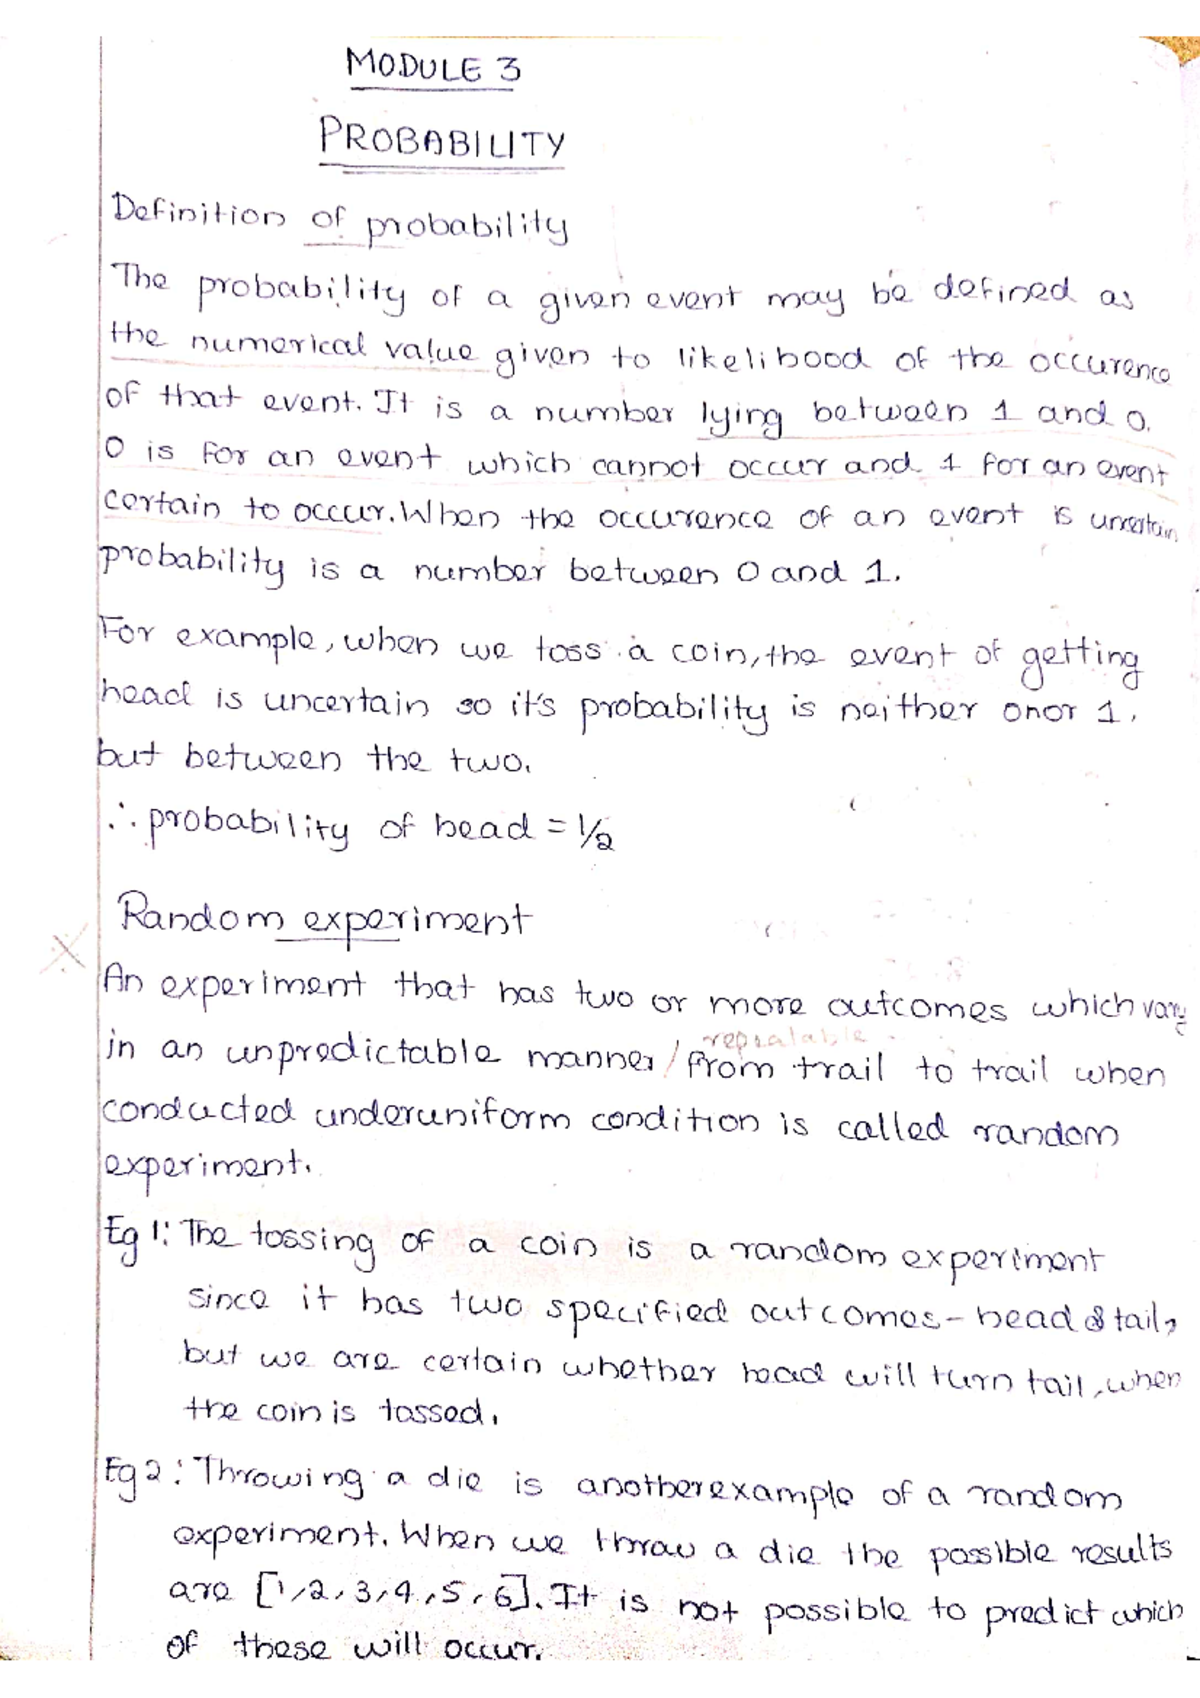 MODULE 3
PROBABILITY
Definition of probability
The probability of a given event may be defined as
the numerical value given to likelihood of the occurence
of that event. It is a number lying between 1 and 0.
0 is for an event which cannot occur and 1 for an event
certain to occur. When the occurence of an event is uncertain
probability is a number between 0 and 1.
For example, when we toss a coin, the event of getting
head is uncertain so it's probability is neither 0 nor 1,
but between the two.
∴ probability of head = 1/2
Random experiment
An experiment that has two or more outcomes which vary
repeatable
in an unpredictable manner / from trail to trail when
conducted under uniform condition is called random
experiment.
Eg 1: The tossing of a coin is a random experiment
since it has two specified outcomes - head & tail,
but we are certain whether head will turn tail, when
the coin is tossed.
Eg 2: Throwing a die is another example of a random
experiment. When we throw a die the possible results
are [1, 2, 3, 4, 5, 6]. It is not possible to predict which
of these will occur.